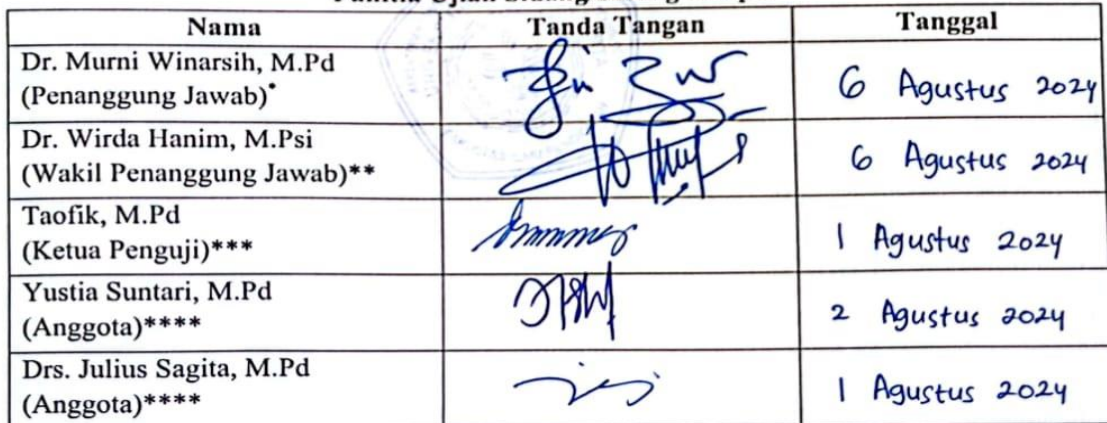 Nama Tanda Tangan Tanggal
Dr. Murni Winarsih, M.Pd
(Penanggung Jawab)* 6 Agustus 2024
Dr. Wirda Hanim, M.Psi
(Wakil Penanggung Jawab)** 6 Agustus 2024
Taofik, M.Pd
(Ketua Penguji)*** 1 Agustus 2024
Yustia Suntari, M.Pd
(Anggota)**** 2 Agustus 2024
Drs. Julius Sagita, M.Pd
(Anggota)**** 1 Agustus 2024